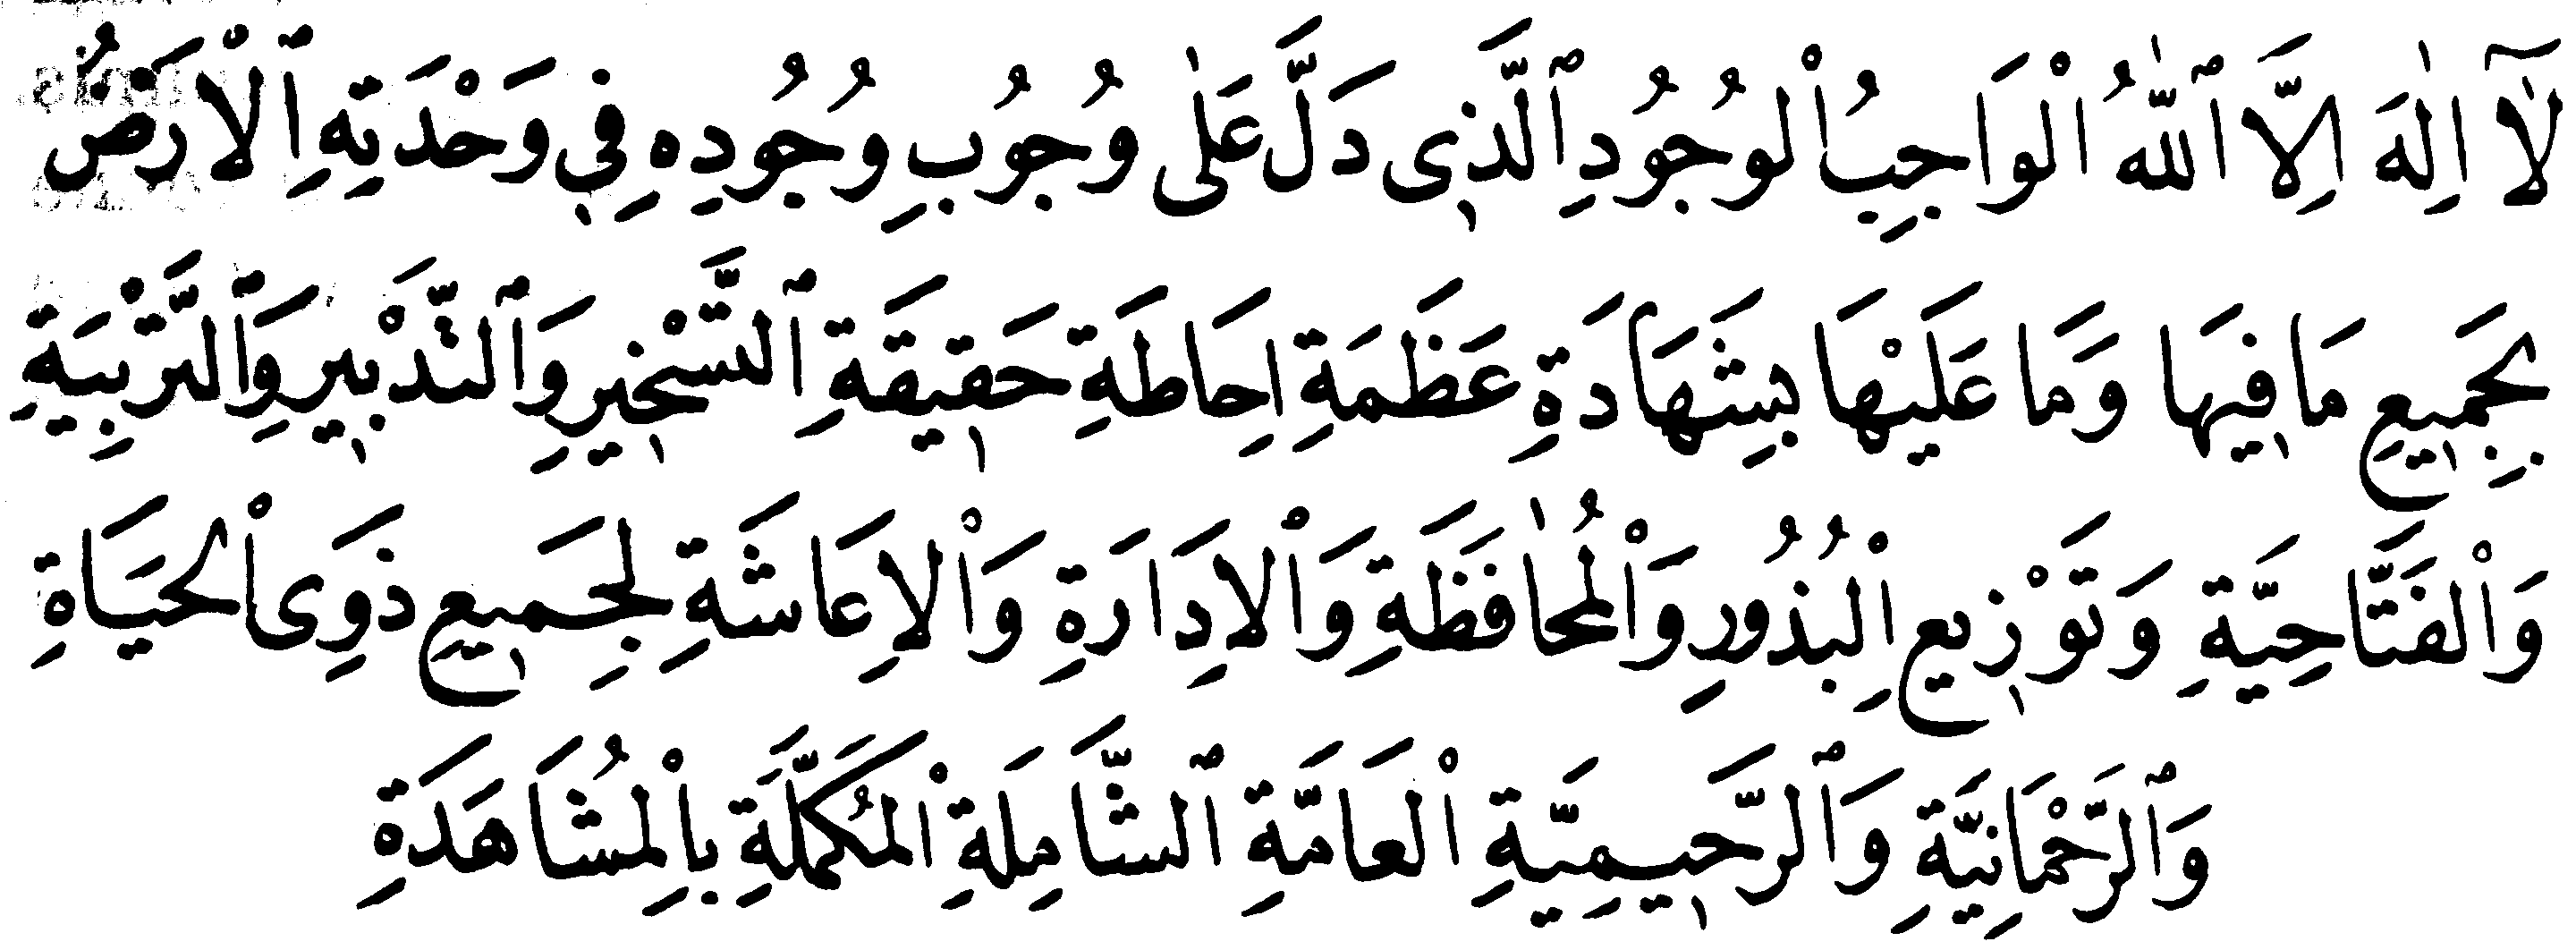 لَٓا اِلٰهَ اِلَّا ٱللّٰهُ الْوَاجِبُ الْوُجُودِ ٱلَّذِى دَلَّ عَلٰى وُجُوبِ وُجُودِهِ فِى وَحْدَتِهِ ٱلْاَرْضُ
بِجَمِيعِ مَا فِيهَا وَمَا عَلَيْهَا بِشَهَادَةِ عَظَمَةِ اِحَاطَةِ حَقِيقَةِ ٱلتَّسْخِيرِ وَٱلتَّدْبِيرِ وَٱلتَّرْبِيَةِ
وَالْفَتَّاحِيَّةِ وَتَوْزِيعِ الْبُذُورِ وَالْمُحَافَظَةِ وَالْاِدَارَةِ وَالْاِعَاشَةِ لِجَمِيعِ ذَوِى الْحَيَاةِ
وَٱلرَّحْمَانِيَّةِ وَٱلرَّحِيمِيَّةِ الْعَامَّةِ ٱلشَّامِلَةِ الْمُكَمَّلَةِ بِالْمُشَاهَدَةِ